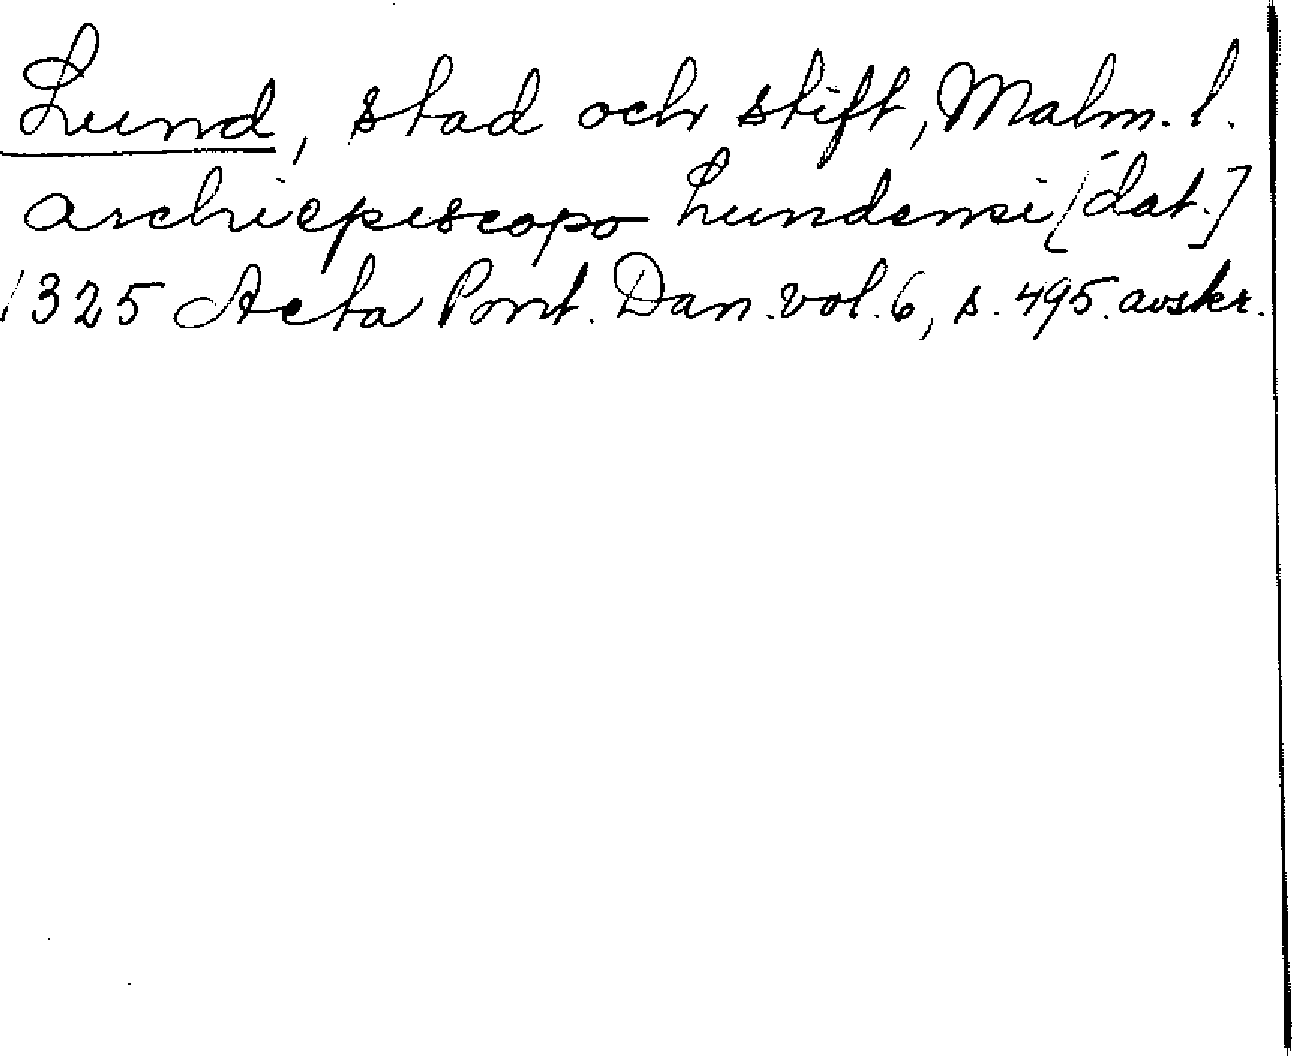 Lund, stad och stift, Malm. l.
archiepiscopo Lundensi [dat.]
1325 Acta Pont. Dan. vol. 6, s. 495. avskr.